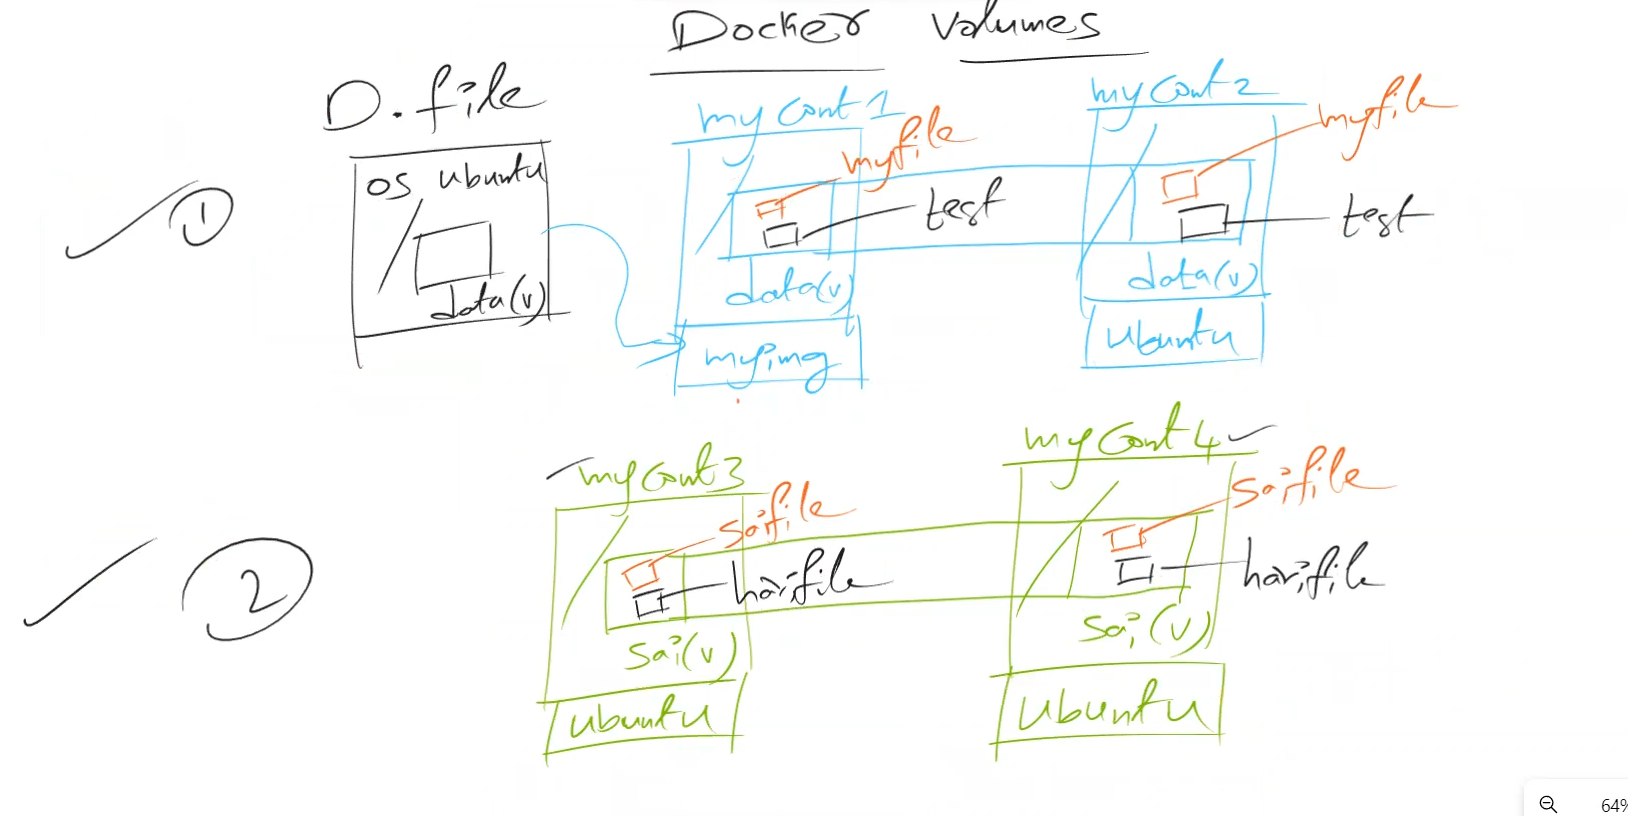 Docker Volumes
D.file
OS ubuntu
data(v)
1
my Cont 1
myfile
test
data(v)
myimg
my Cont 2
myfile
test
data(v)
ubuntu
2
my Cont 3
saifile
harifile
sai(v)
ubuntu
my Cont 4
saifile
harifile
sai(v)
ubuntu
64%